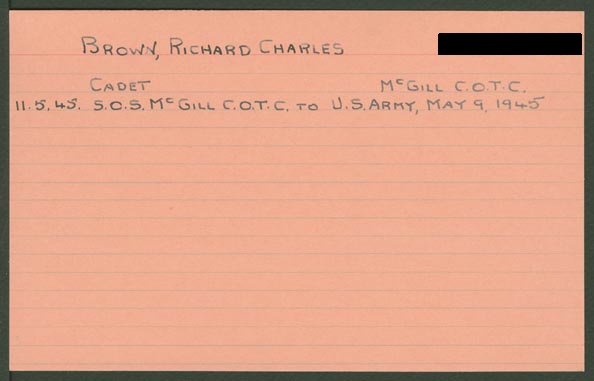 BROWN, RICHARD CHARLES
CADET McGILL C.O.T.C.
11.5.45. S.O.S. McGILL C.O.T.C. TO U.S. ARMY, MAY 9, 1945